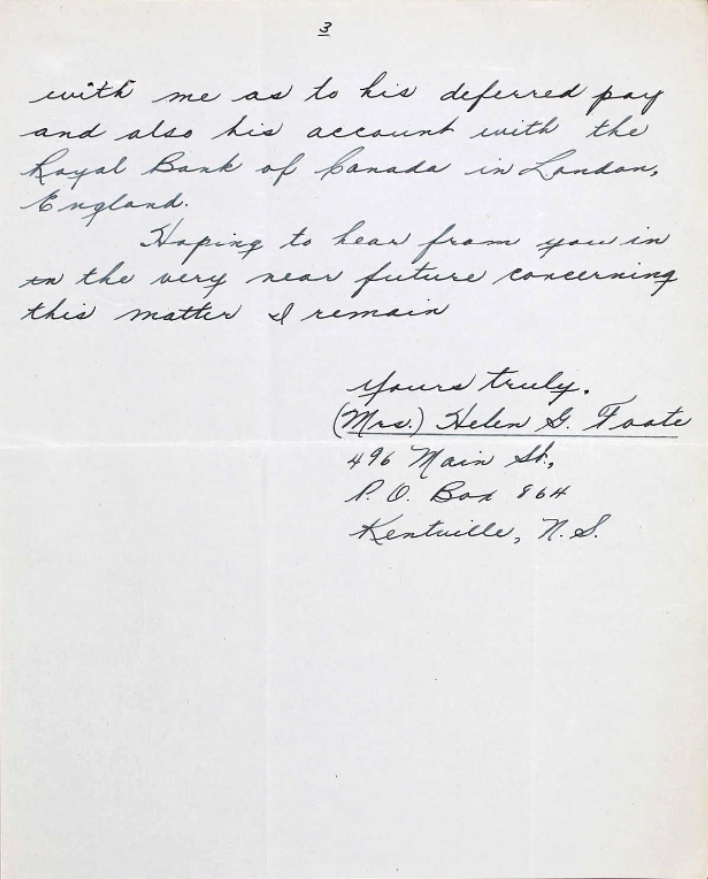 3
with me as to his deferred pay
and also his account with the
Royal Bank of Canada in London,
England.
Hoping to hear from you in
in the very near future concerning
this matter I remain
Yours truly.
(Mrs.) Helen G. Foote
496 Main St.,
P. O. Box 864
Kentville, N. S.